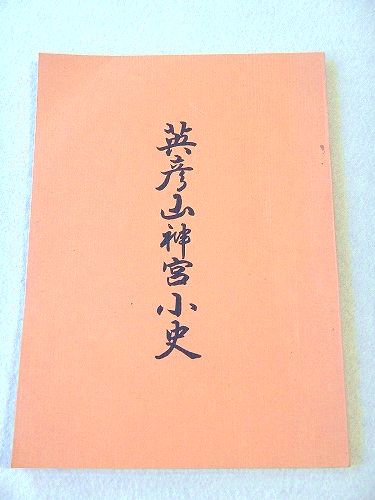 英彦山神宮小史